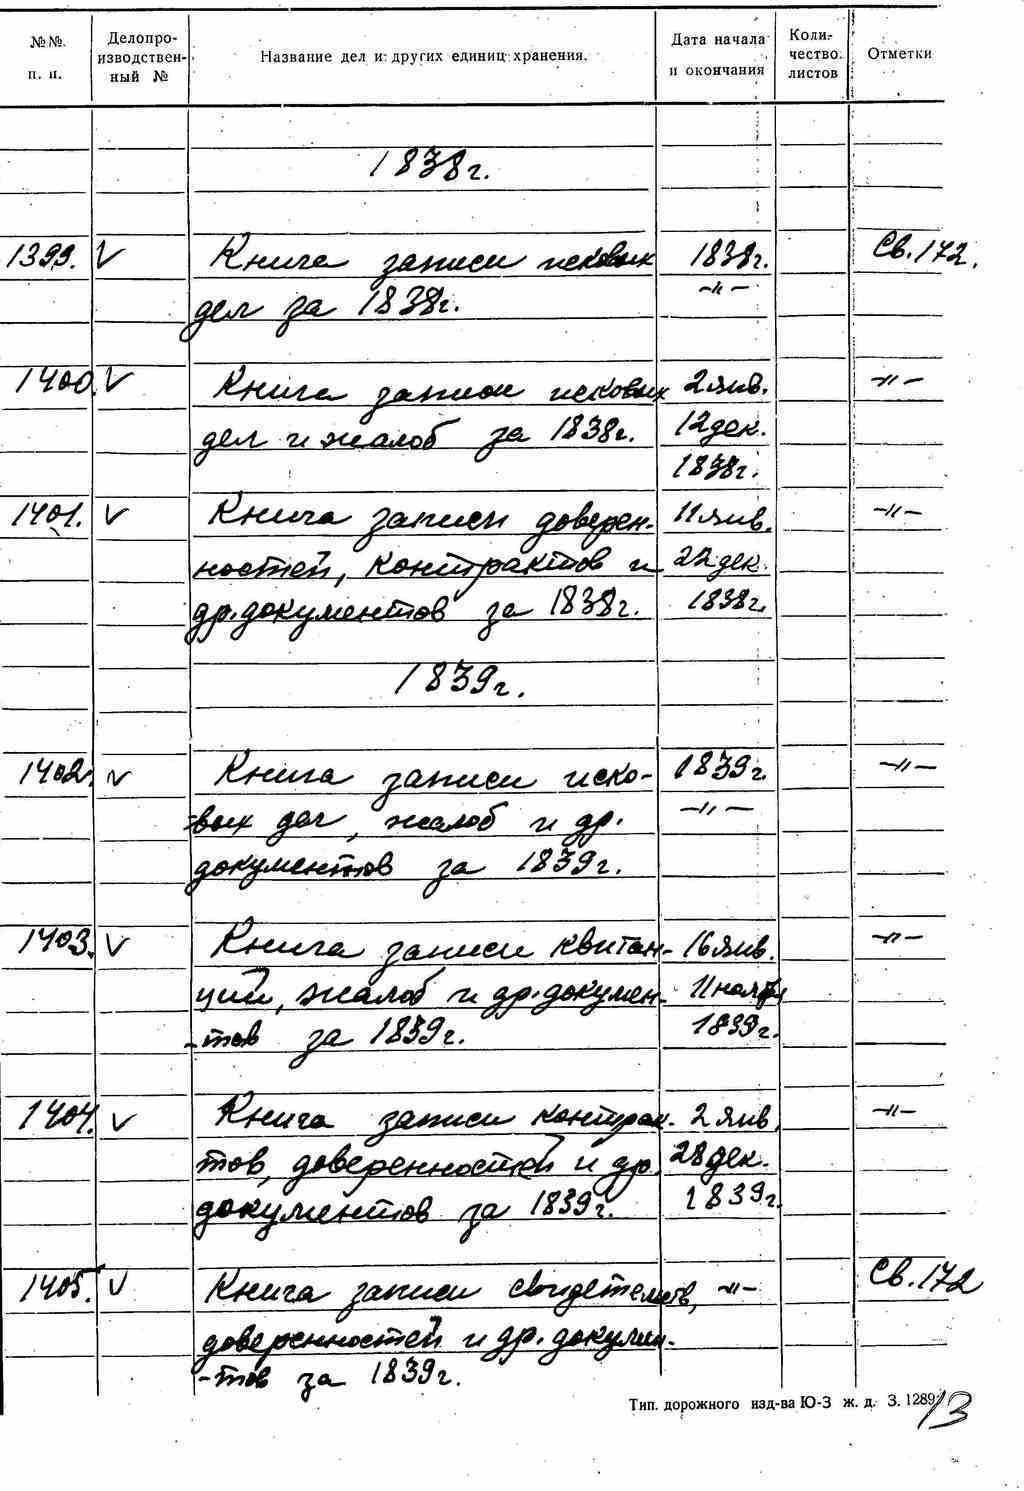 №№ п. п. Делопроизводственный № Название дел и других единиц хранения. Дата начала и окончания Количество листов Отметки
1838г.
1399. V Книга записи исковых 1838г. Св.172.
дел за 1838г. -"-
1400. V Книга записи исковых 2 янв. -"-
дел и жалоб за 1838г. 12 дек.
1838г.
1401. V Книга записи доверен- 11 янв. -"-
ностей, контрактов и 22 дек.
др. документов за 1838г. 1838г.
1839г.
1402. V Книга записи иско- 1839г. -"-
-вых дел, жалоб и др. -"-
документов за 1839г.
1403. V Книга записи квитан- 16 янв. -"-
ций, жалоб и др. докумен- 11 ноября
-тов за 1839г. 1839г.
1404. V Книга записи контрак- 2 янв. -"-
тов, доверенностей и др. 28 дек.
документов за 1839г. 1839г.
1405. V Книга записи свидетельств, -"- Св.172
доверенностей и др. докумен-
-тов за 1839г.
Тип. дорожного изд-ва Ю-З ж. д. З. 1289
13